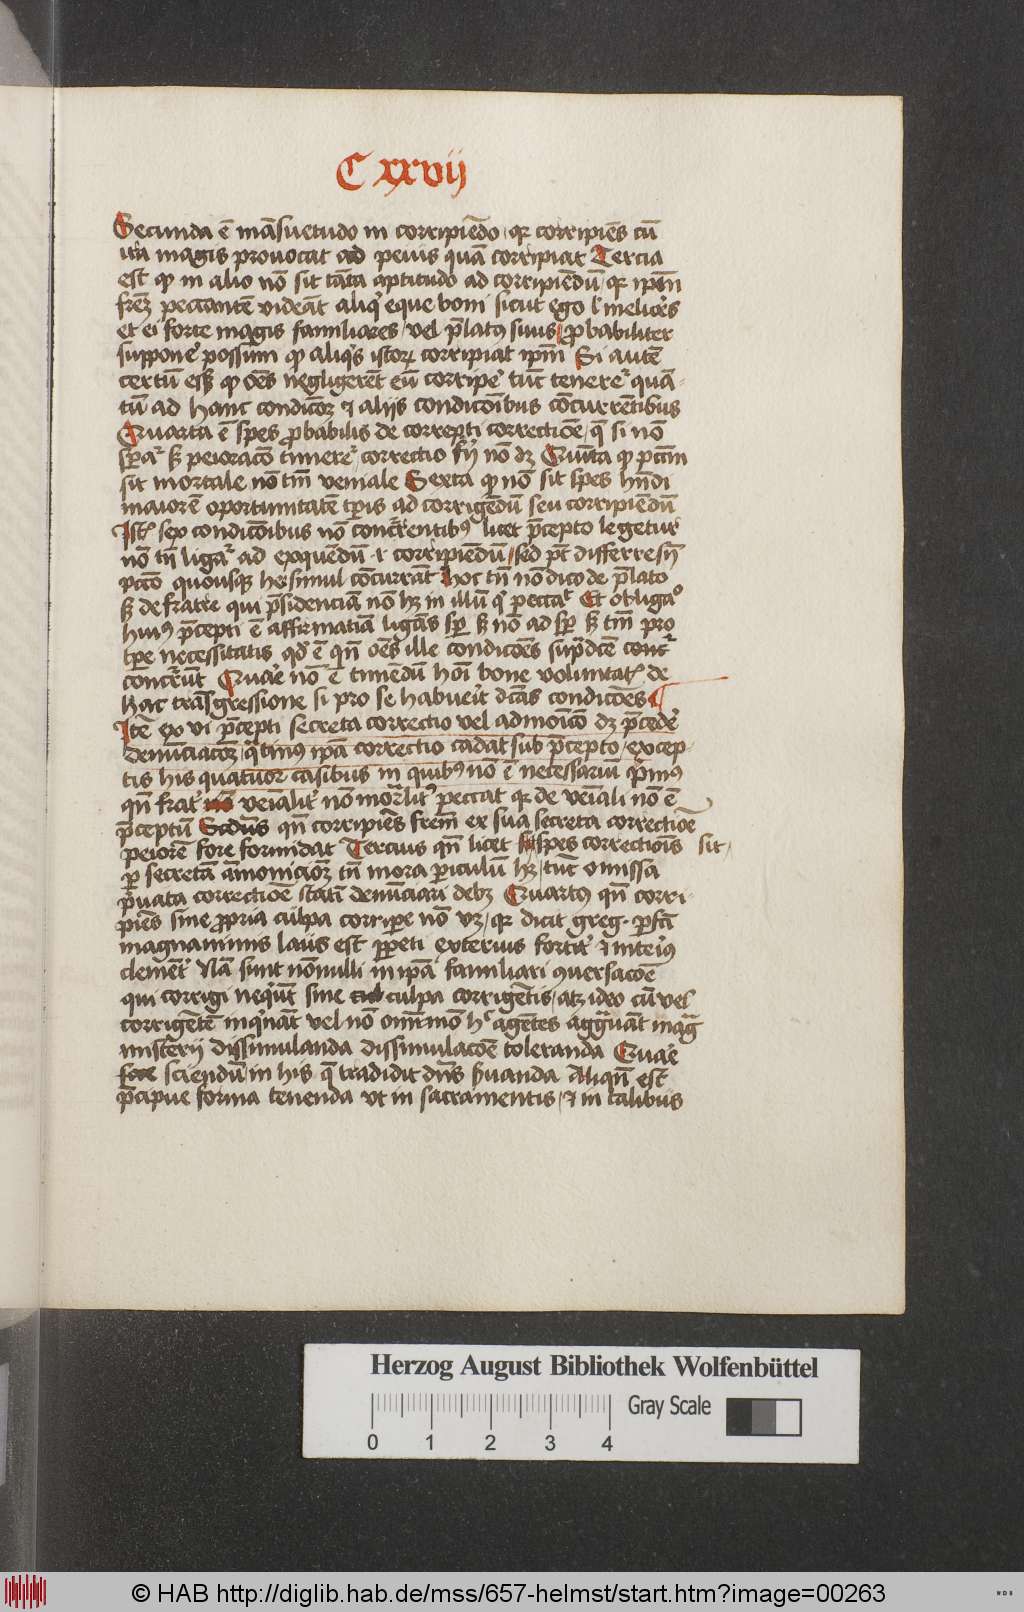 C xxvij
Secunda ē māsuetudo in corripiēdo / qr corripiēs cū
ira magis provocat ad peius quā corripiat Tercia
est qp in alio nō sit tāta aptitudo ad corripiēdū / qr ipsm̄
frēz peccantē videāt aliq' eque boni sicut ego l' meliores
et ei forte magis familiares / vel p̄latus suus / probabiliter
supponē possum qp aliq's istorꝝ corripiat ipm̄ Si autē
certū esset qp oēs negligerēt eū corripe' tūc tenere' quā-
tū ad hanc condicōꝫ ⁊ aliis condicōibus cōcurrētibus
Quarta ē spes probabilis de correpti correctiōe / q̄ si nō
speraꝰ sꝫ peioracō timere' / correctio fi' nō dꝫ Quīta qp pctm̄
sit mortale nō tm̄ veniale Sexta qp nō sit spes hn̄di
maiorē oportunitatē tp̄is ad corrigēdū seu corripiēdū
Ist' sex condicōibus nō concurrentibꝰ licet p̄cepto legetur
nō tn̄ ligaꝰ ad exquēdū ⁊ corripiēdū / sed pt̄ differre sn̄
pctō quousqꝫ hec simul cōcurrāt Hoc tn̄ nō dico de p̄lato
sꝫ de fratre qui p̄sidenciā nō hꝫ in illū q' peccat Et obligaco
huiꝰ p̄cepti ē affirmatiua ligās sp̄ sꝫ nō ad sp̄ sꝫ tm̄ pro
tp̄e necessitatis qd' ē qn̄ oēs ille condicōes supdcē
concurrūt Quare nō ē timēdū hoī bone voluntat' de
hac trāsgressione si pro se habuerit dcās condicōes
Itē ex vi p̄cepti secreta correctio vel admonicō dꝫ p̄cede'
denūciacōꝫ / q̄tinus ipā correctio cadat sub p̄cepto / excep-
tis his quatuor casibus in quibꝰ nō ē necessariū p'mus
qn̄ frat' venialit' nō mortalit' peccat qr de veniali nō ē
p̄ceptū Scdus qn̄ corripiēs frēm ex sua secreta correctiōe
peiorē fore formidat Tercius qn̄ licet spes correctiōis sit /
p secretā amonicōꝫ tn̄ mora piculū hꝫ / tūc omissa
p'uata correctiōe statī denūciari debꝫ Quartus qn̄ corri-
piēs sine propria culpa corripe nō vꝫ / qr dicit greg. pfcā
magnanimis laus est ppeti exterius fortit' ⁊ interius
clemēt' Nā sunt nōnulli in ipā familiari ꝯuersacōe
qui corrigi neq̄ūt sine culpa corrigētis / atqꝫ ideo cū vel
corrigētē inq'nāt vel nō omīno h' agētes aggrauāt mag
misterij dissimulanda dissimulacōe toleranda Quare
sciendū in his q̄ tradidit dn̄s seruanda Aliqn̄ est
p̄cipue forma tenenda vt in sacramentis / ⁊ in talibus
Herzog August Bibliothek Wolfenbüttel
Gray Scale
0 1 2 3 4
© HAB http://diglib.hab.de/mss/657-helmst/start.htm?image=00263